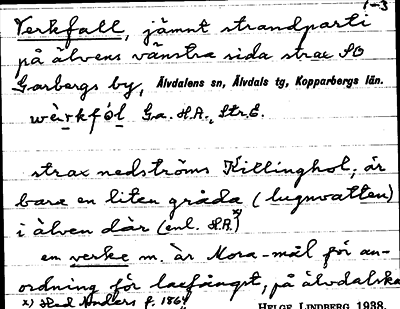 1-3
Verkfall, jämnt strandparti
på älvens vänstra sida strax SO
Garbergs by, Älvdalens sn, Älvdals tg, Kopparbergs län.
wèrkfòl Ga. H.A., Str.E.
strax nedströms Killinghol; är
bara en liten gråda (lugnvatten)
i älven där (enl. H.A.x)
en verke m. är Mora-mål för an-
ordning för laxfångst, på älvdalska
x) Hed Anders f. 1864 HELGE LINDBERG 1938.